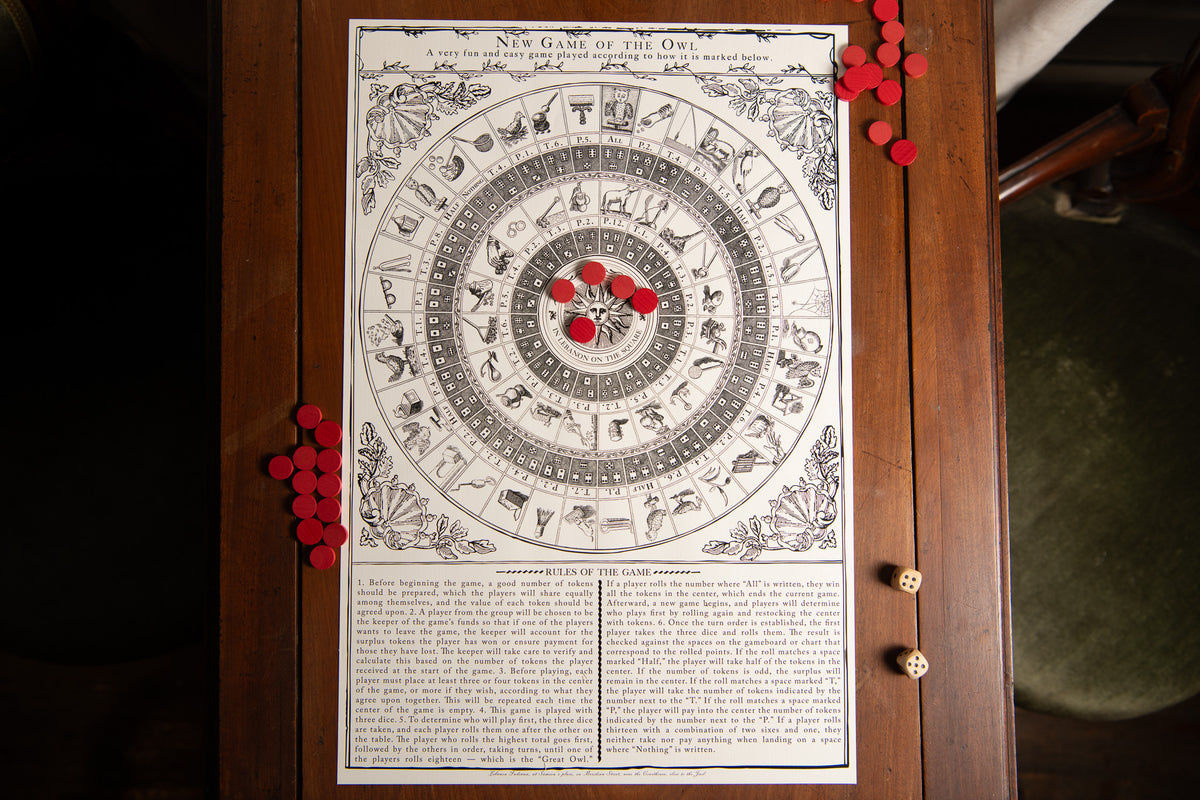 New Game of the Owl
A very fun and easy game played according to how it is marked below.
IN LEBANON ON THE SQUARE
RULES OF THE GAME
1. Before beginning the game, a good number of tokens
should be prepared, which the players will share equally
among themselves, and the value of each token should be
agreed upon. 2. A player from the group will be chosen to be
the keeper of the game's funds so that if one of the players
wants to leave the game, the keeper will account for the
surplus tokens the player has won or ensure payment for
those they have lost. The keeper will take care to verify and
calculate this based on the number of tokens the player
received at the start of the game. 3. Before playing, each
player must place at least three or four tokens in the center
of the game, or more if they wish, according to what they
agree upon together. This will be repeated each time the
center of the game is empty. 4. This game is played with
three dice. 5. To determine who will play first, the three dice
are taken, and each player rolls them one after the other on
the table. The player who rolls the highest total goes first,
followed by the others in order, taking turns, until one of
the players rolls eighteen — which is the "Great Owl."
If a player rolls the number where "All" is written, they win
all the tokens in the center, which ends the current game.
Afterward, a new game begins, and players will determine
who plays first by rolling again and restocking the center
with tokens. 6. Once the turn order is established, the first
player takes the three dice and rolls them. The result is
checked against the spaces on the gameboard or chart that
correspond to the rolled points. If the roll matches a space
marked "Half," the player will take half of the tokens in the
center. If the number of tokens is odd, the surplus will
remain in the center. If the roll matches a space marked "T,"
the player will take the number of tokens indicated by the
number next to the "T." If the roll matches a space marked
"P," the player will pay into the center the number of tokens
indicated by the number next to the "P." If a player rolls
thirteen with a combination of two sixes and one, they
neither take nor pay anything when landing on a space
where "Nothing" is written.